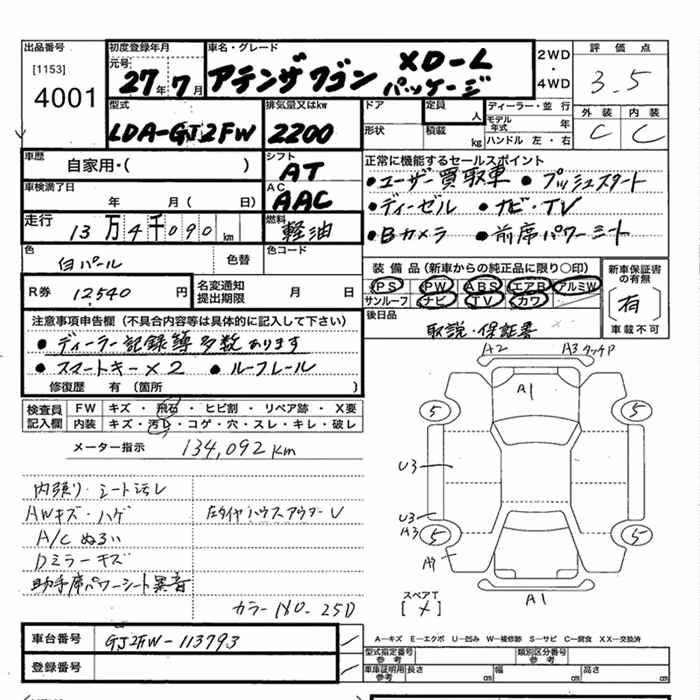 出品番号
[1153]
4001
初度登録年月
元号
27年7月
車名・グレード
アテンザワゴン XD-L
パッケージ
2WD
・
4WD
評価点
3.5
外装 内装
C C
型式
LDA-GJ2FW
排気量又はkw
2200
ドア
形状
定員
人
積載
kg
ディーラー・並行
モデル年式 年
ハンドル 左・右
車歴
自家用・( )
シフト
AT
車検満了日
年 月( 日)
AC
AAC
走行
13万4千090km
燃料
軽油
正常に機能するセールスポイント
・ユーザー買取車 ・プッシュスタート
・ディーゼル ・ナビ・TV
・Bカメラ ・前席パワーシート
色
白パール
色替
色コード
R券 12,540円
名変通知
提出期限
月 日
装備品(新車からの純正品に限り○印)
PS PW ABS エアB アルミW
サンルーフ ナビ TV カワ
新車保証書
の有無
(有)
車載不可
後日品
取説・保証書
注意事項申告欄(不具合内容等は具体的に記入して下さい)
・ディーラー記録簿多数あります
・スマートキー×2 ・ルーフレール
修復歴 有(箇所 )
検査員
記入欄
FW キズ・飛石・ヒビ割・リペア跡・X要
内装 キズ・汚レ・コゲ・穴・スレ・キレ・破レ
メーター指示 134,092km
内張り・シート汚レ
AWキズ・ハゲ 左タイヤハウスアウターU
A/Cぬるい
Dミラーキズ
助手席パワーシート異音
カラーNO-25D
A2 A3
A1
5 5
U3
U3
A3
5 5
A1
スペアT
[メ]
A1
車台番号 GJ2FW-113793
登録番号
A－キズ E－エクボ U－凹み W－補修跡 S－サビ C－腐食 XX－交換済
型式指定番号
参考
類別区分番号
参考
車庫証明用
参考
長さ cm 幅 cm 高さ cm